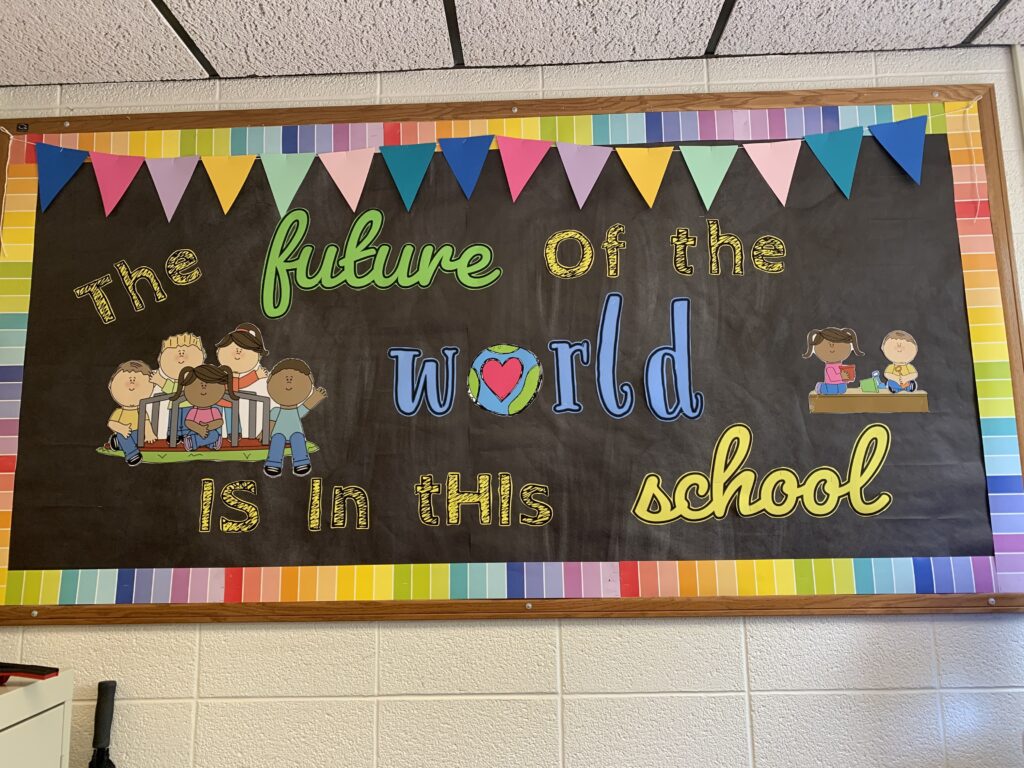 The future of the
world
IS In tHIs school